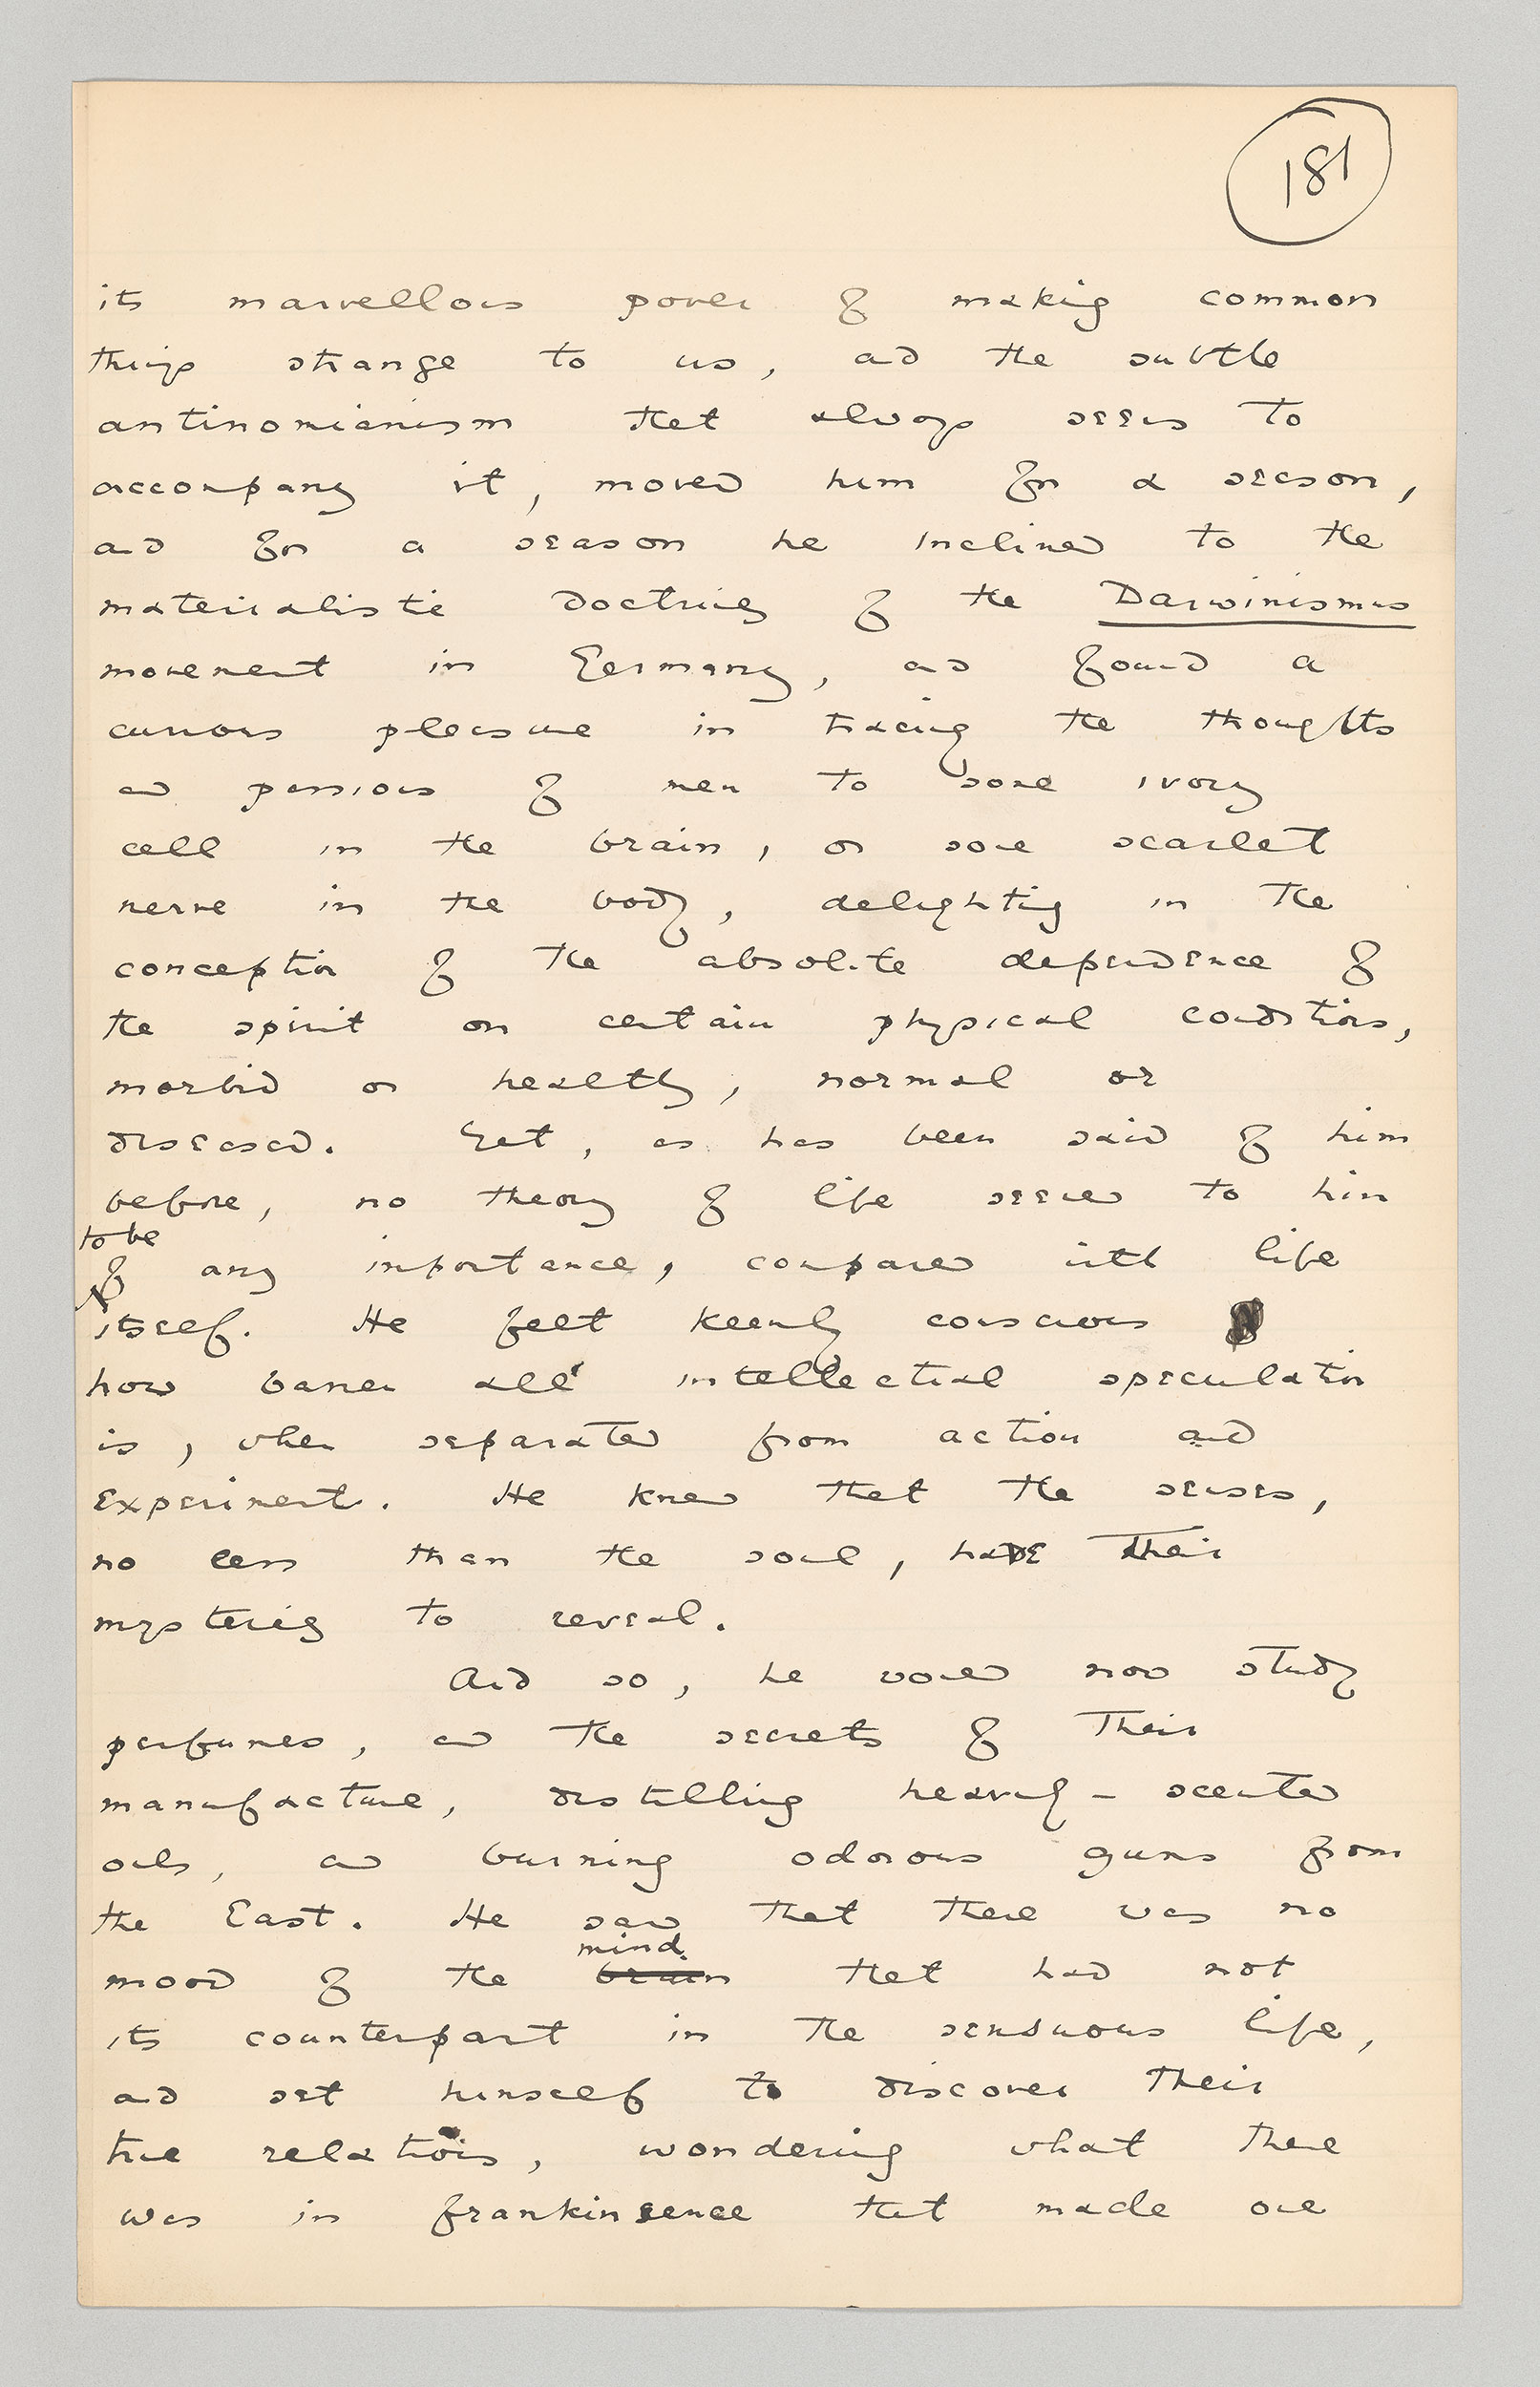 181
its marvellous power of making common
things strange to us, and the subtle
antinomianism that always seems to
accompany it, moved him for a season,
and for a season he inclined to the
materialistic doctrines of the Darwinismus
movement in Germany, and found a
curious pleasure in tracing the thoughts
and passions of men to some ivory
cell in the brain, or some scarlet
nerve in the body, delighting in the
conception of the absolute dependence of
the spirit on certain physical conditions,
morbid or healthy, normal or
diseased. Yet, as has been said of him
before, no theory of life seemed to him
to be
of any importance, compared with life
itself. He felt keenly conscious
how barren all intellectual speculation
is, when separated from action and
experiment. He knew that the senses,
no less than the soul, have their
mysteries to reveal.
And so, he would now study
perfumes, and the secrets of their
manufacture, distilling heavily-scented
oils, and burning odorous gums from
the East. He saw that there was no
mind
mood of the brain that had not
its counterpart in the sensuous life,
and set himself to discover their
true relations, wondering what there
was in frankinsence that made one